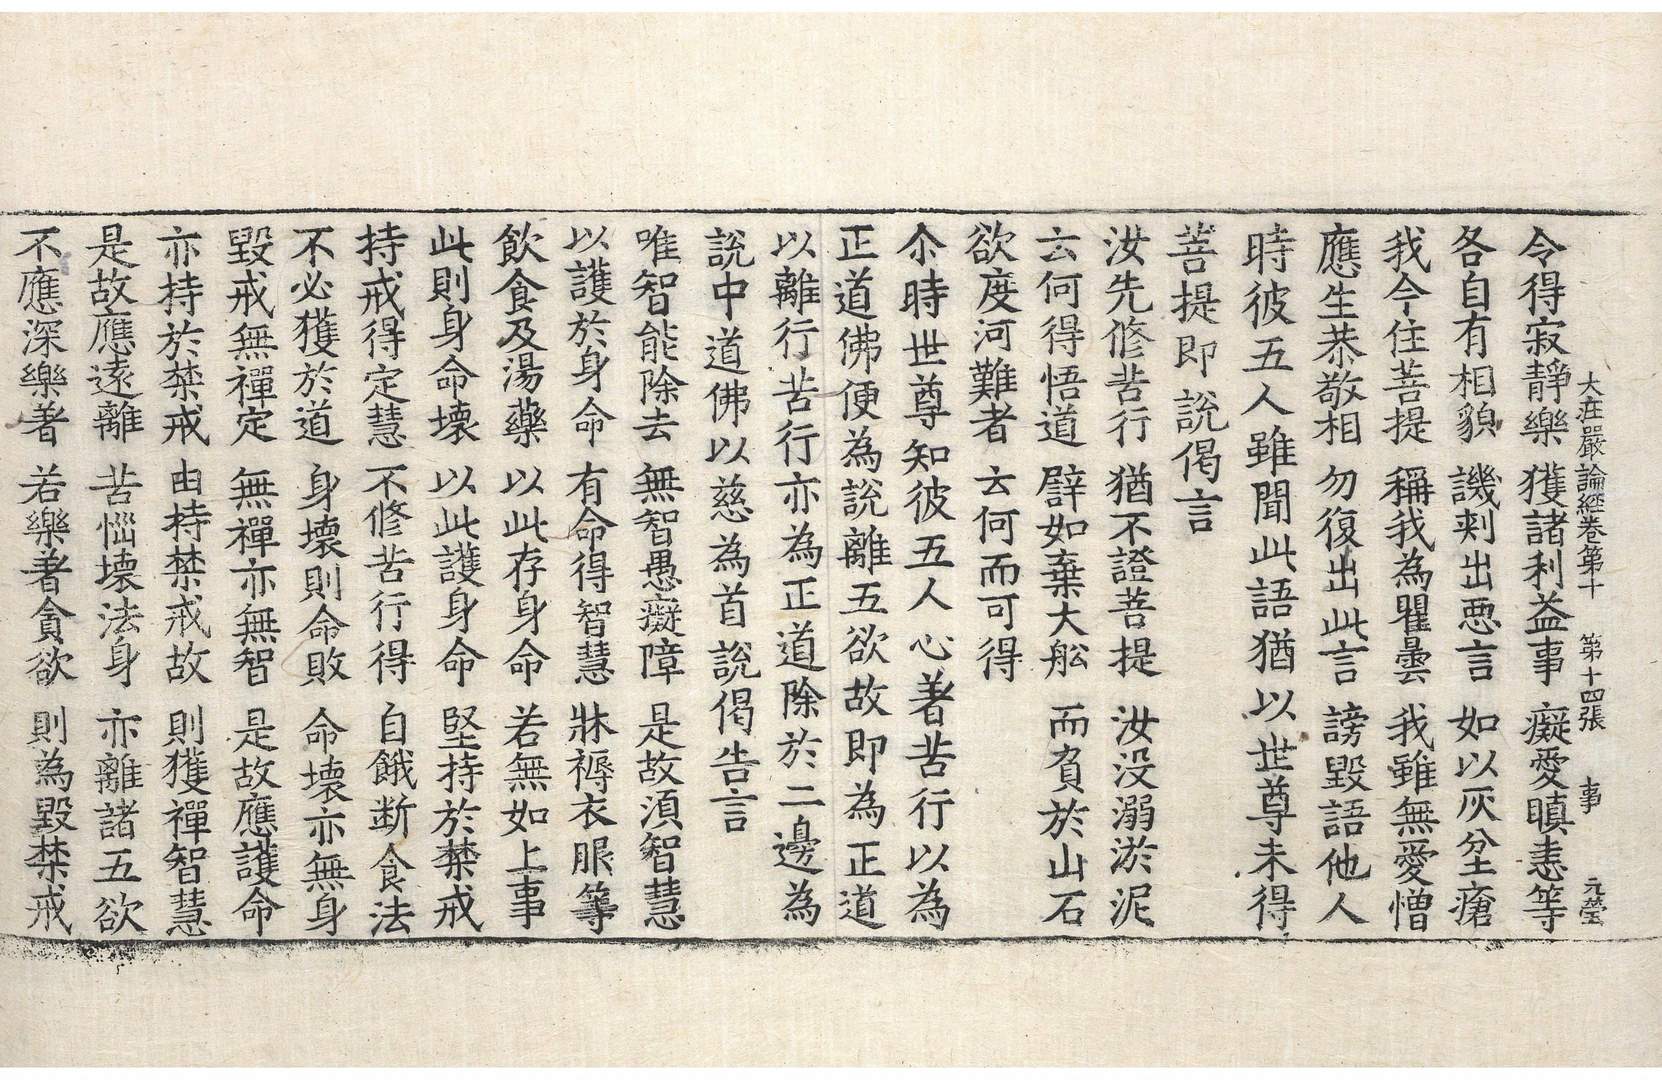 大莊嚴論經卷第十 第十四張 事 元瑩
令得寂靜樂 獲諸利益事 癡愛瞋恚等
各自有相貌 譏刾出惡言 如以灰坌瘡
我今住菩提 稱我為瞿曇 我雖無愛憎
應生恭敬相 勿復出此言 謗毀語他人
時彼五人雖聞此語猶以世尊未得
菩提即說偈言
汝先修苦行 猶不證菩提 汝没溺淤泥
云何得悟道 譬如棄大舩 而負於山石
欲度河難者 云何而可得
尒時世尊知彼五人心著苦行以為
正道佛便為說離五欲故即為正道
以離行苦行亦為正道除於二邊為
說中道佛以慈為首說偈告言
唯智能除去 無智愚癡障 是故湏智慧
以護於身命 有命得智慧 牀褥衣服等
飲食及湯藥 以此存身命 若無如上事
此則身命壞 以此護身命 堅持於禁戒
持戒得定慧 不修苦行得 自餓断食法
不必獲於道 身壞則命敗 命壞亦無身
毀戒無禪定 無禪亦無智 是故應護命
亦持於禁戒 由持禁戒故 則獲禪智慧
是故應遠離 苦惱壞法身 亦離諸五欲
不應深樂著 若樂著貪欲 則為毀禁戒